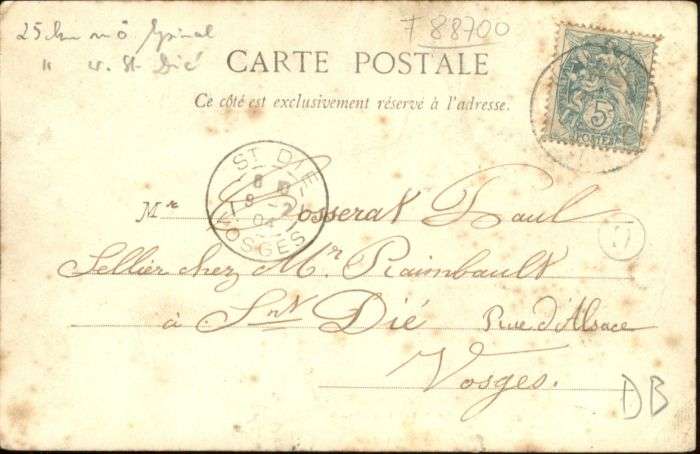 25 km nö Epinal
" w. St Dié
T 88700
CARTE POSTALE
Ce côté est exclusivement réservé à l'adresse.
5
POSTES
ST DIÉ
8
8 -7
04
VOSGES
Mr Rosserat Paul
Sellier chez Mr Raimbault
à Snt Dié Rue d'Alsace
Vosges.
DB